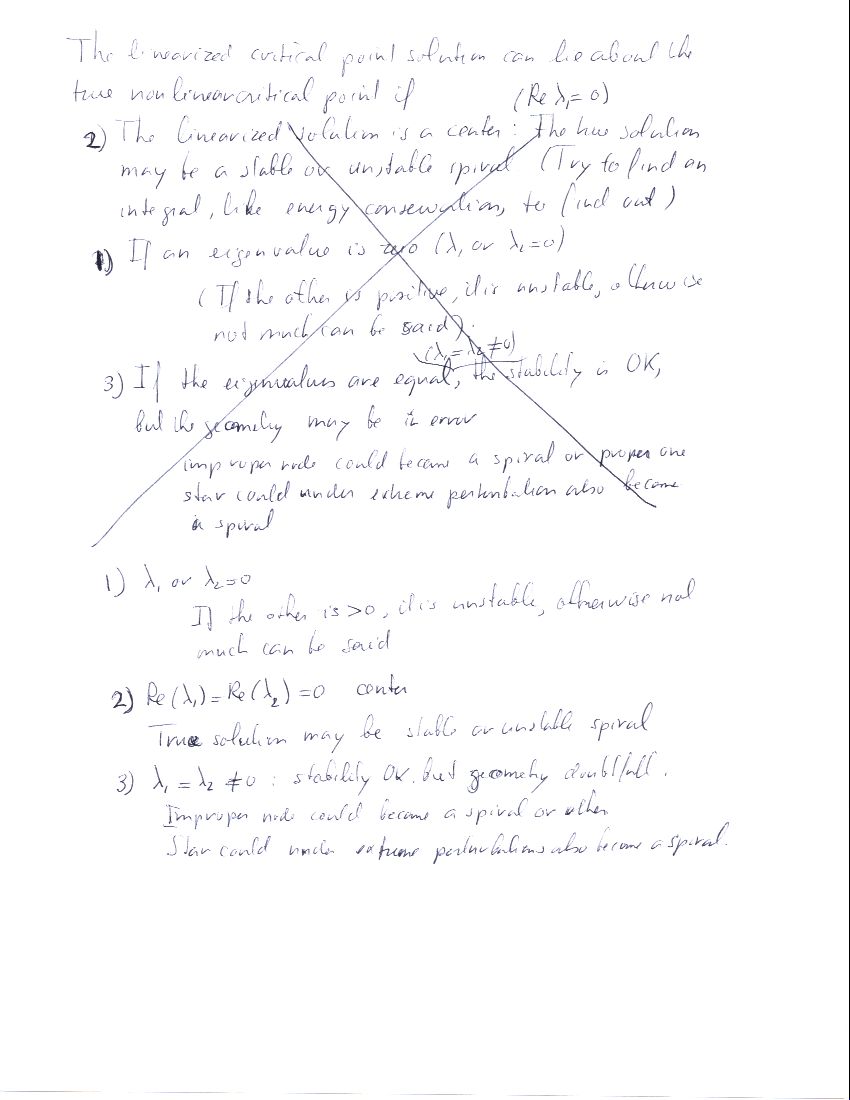 The linearized critical point solution can lie about the
true nonlinear critical point if (Re λ₁ = 0)
2) The linearized solution is a center: The true solution
may be a stable or unstable spiral (Try to find an
integral, like energy conservation, to find out)
1) If an eigenvalue is zero (λ₁ or λ₂=0)
(If the other is positive, it is unstable, otherwise
not much can be said).
(λ₁ = λ₂ ≠ 0)
3) If the eigenvalues are equal, the stability is OK,
but the geometry may be in error
improper node could become a spiral or proper one
star could under extreme perturbation also become
a spiral
1) λ₁ or λ₂=0
If the other is >0, it is unstable, otherwise not
much can be said
2) Re(λ₁) = Re(λ₂) = 0 center
True solution may be stable or unstable spiral
3) λ₁ = λ₂ ≠ 0 : stability OK, but geometry doubtfull.
Improper node could become a spiral or other
Star could under extreme perturbations also become a spiral.